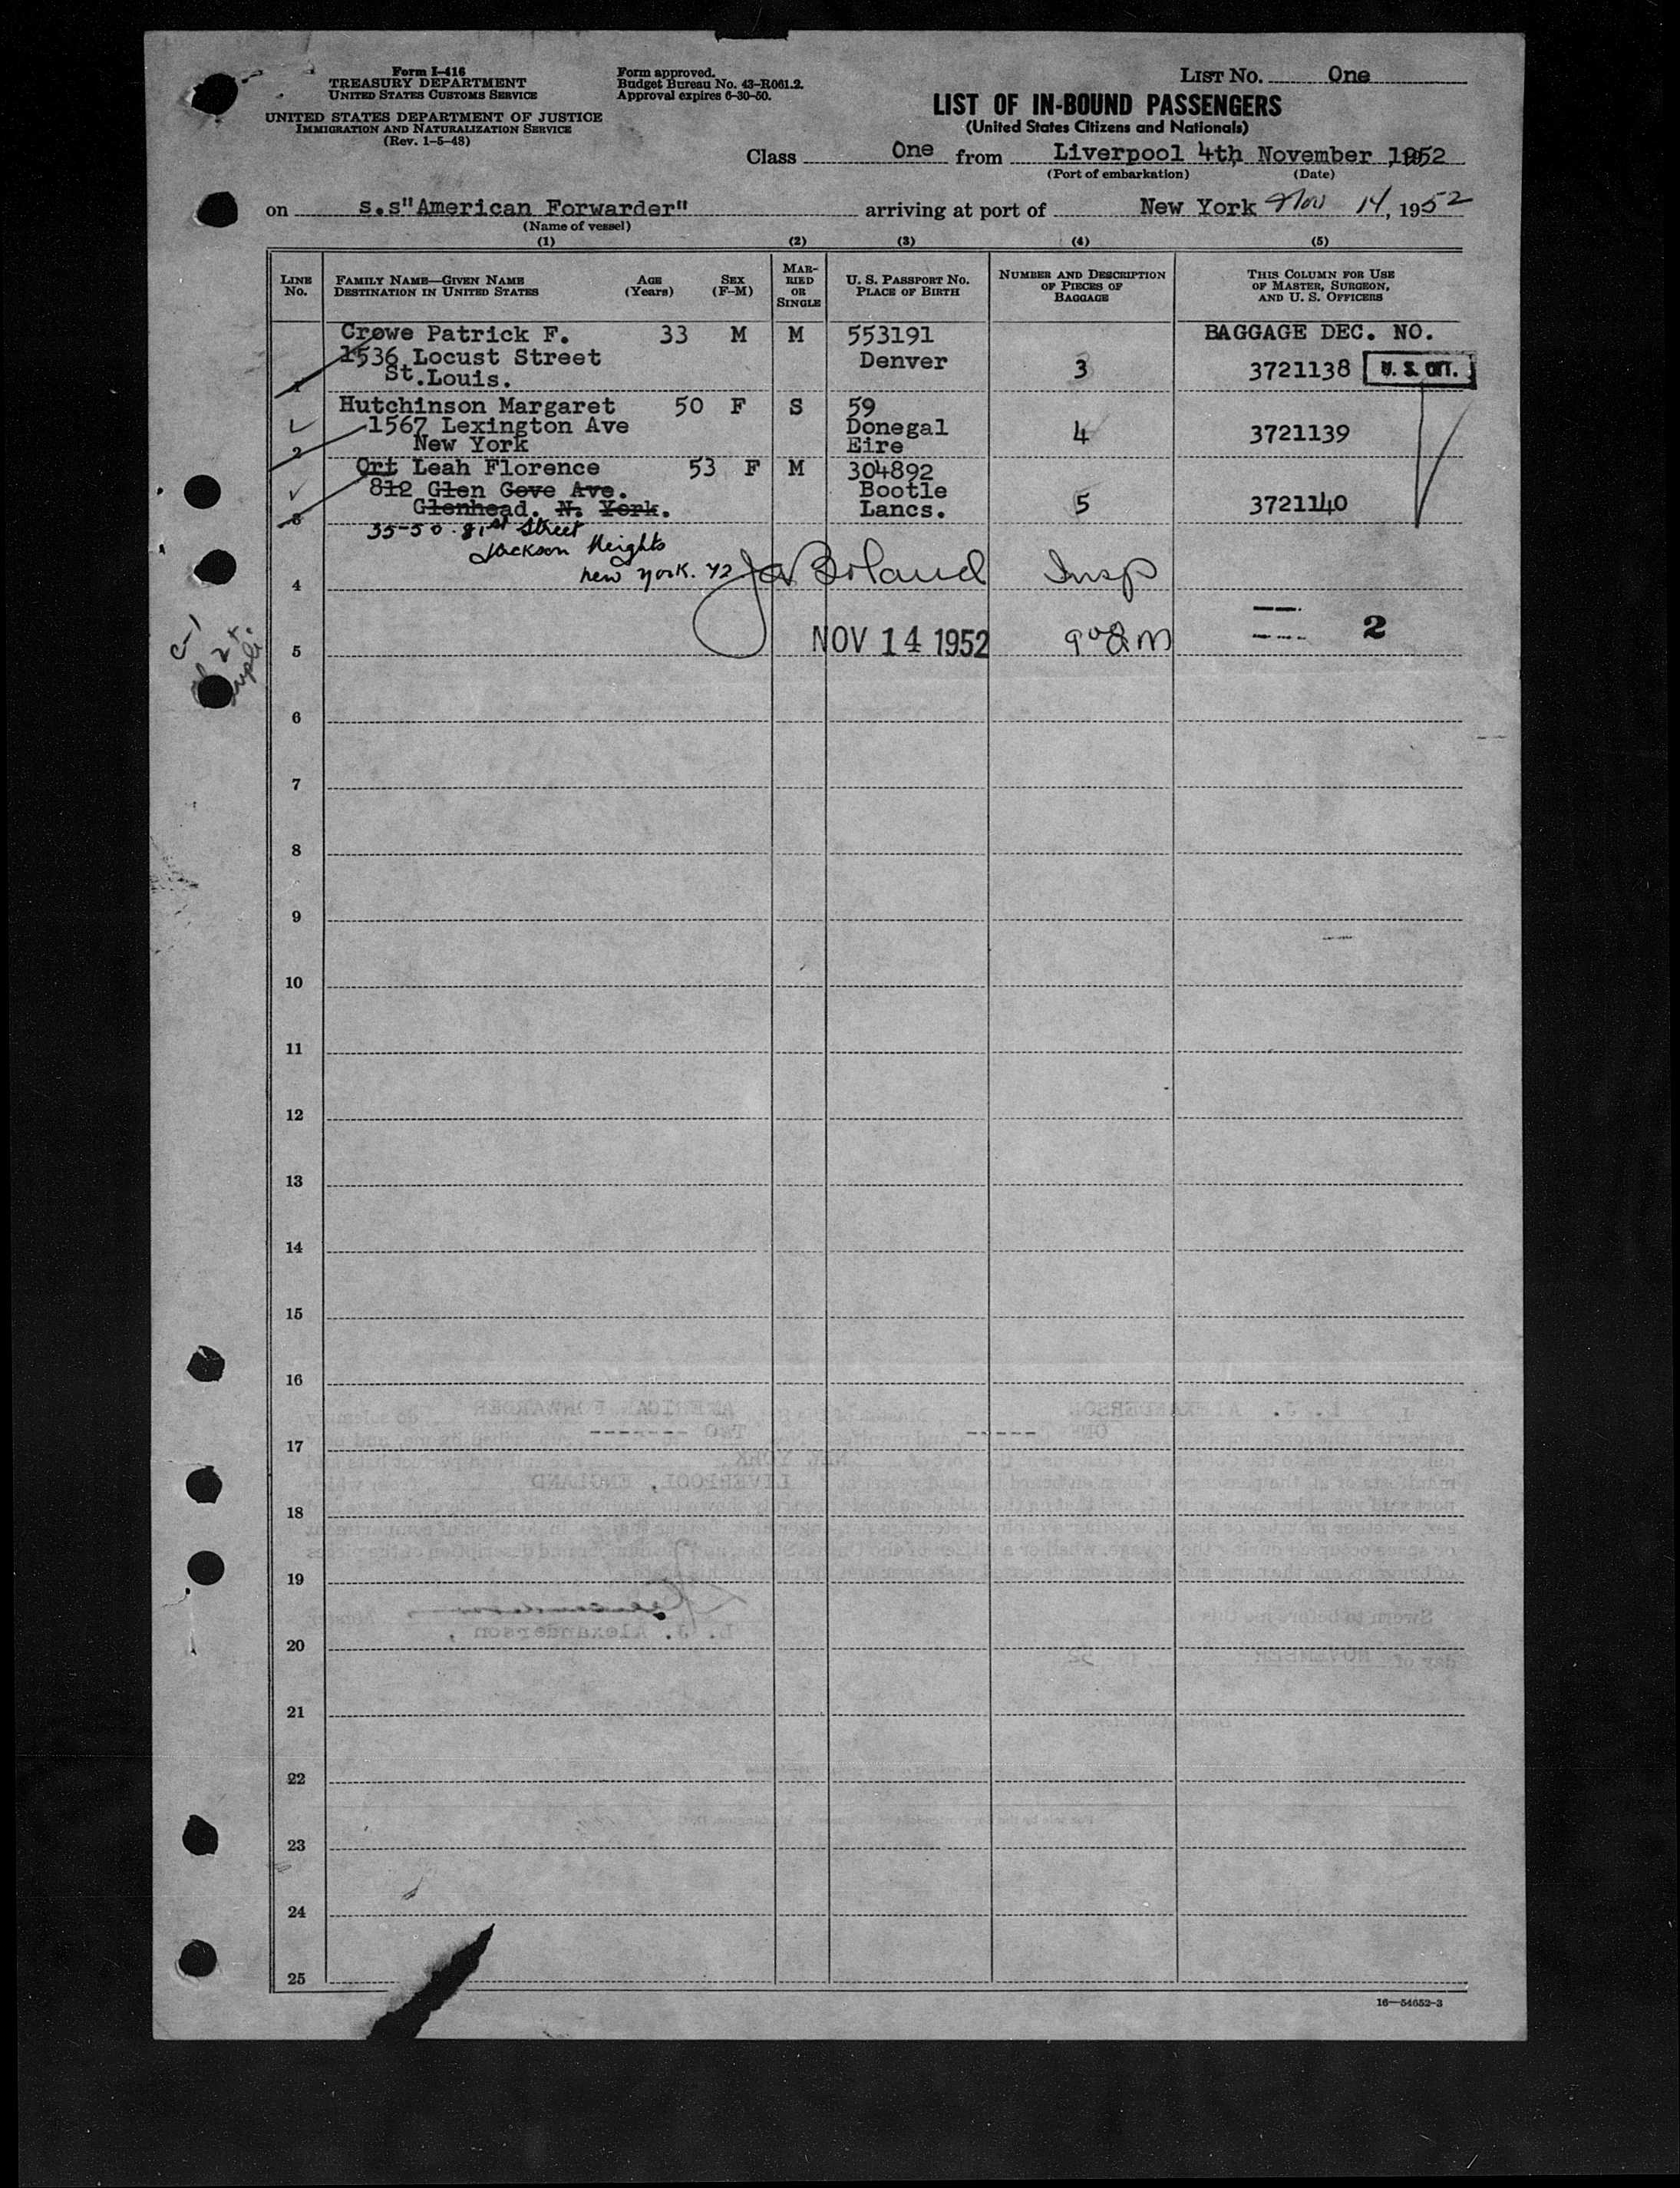 Form I-416
TREASURY DEPARTMENT
UNITED STATES CUSTOMS SERVICE
UNITED STATES DEPARTMENT OF JUSTICE
IMMIGRATION AND NATURALIZATION SERVICE
(Rev. 1-5-48)
Form approved.
Budget Bureau No. 43-R061.2.
Approval expires 6-30-50.
LIST NO. One
LIST OF IN-BOUND PASSENGERS
(United States Citizens and Nationals)
Class One from Liverpool 4th, November, 1952
(Port of embarkation) (Date)
on s.s"American Forwarder" arriving at port of New York Nov 14, 1952
(Name of vessel)
(1) (2) (3) (4) (5)
LINE No. FAMILY NAME—GIVEN NAME DESTINATION IN UNITED STATES AGE (Years) SEX (F-M) MARRIED OR SINGLE U. S. PASSPORT NO. PLACE OF BIRTH NUMBER AND DESCRIPTION OF PIECES OF BAGGAGE THIS COLUMN FOR USE OF MASTER, SURGEON, AND U. S. OFFICERS
Crowe Patrick F. 33 M M 553191 BAGGAGE DEC. NO.
1536 Locust Street Denver 3 3721138 U. S. CIT.
1 St.Louis.
Hutchinson Margaret 50 F S 59
1567 Lexington Ave Donegal 4 3721139
2 New York Eire
Ort Leah Florence 53 F M 304892
812 Glen Cove Ave. Bootle 5 3721140
3 Glenhead. N. York. Lancs.
35-50 81st Street
Jackson Heights
new york. 72
4 Boland Insp
5 NOV 14 1952 9 00 AM 2
C-1
6
7
8
9
10
11
12
13
14
15
16
17
18
19
20
21
22
23
24
25
16—54652-3